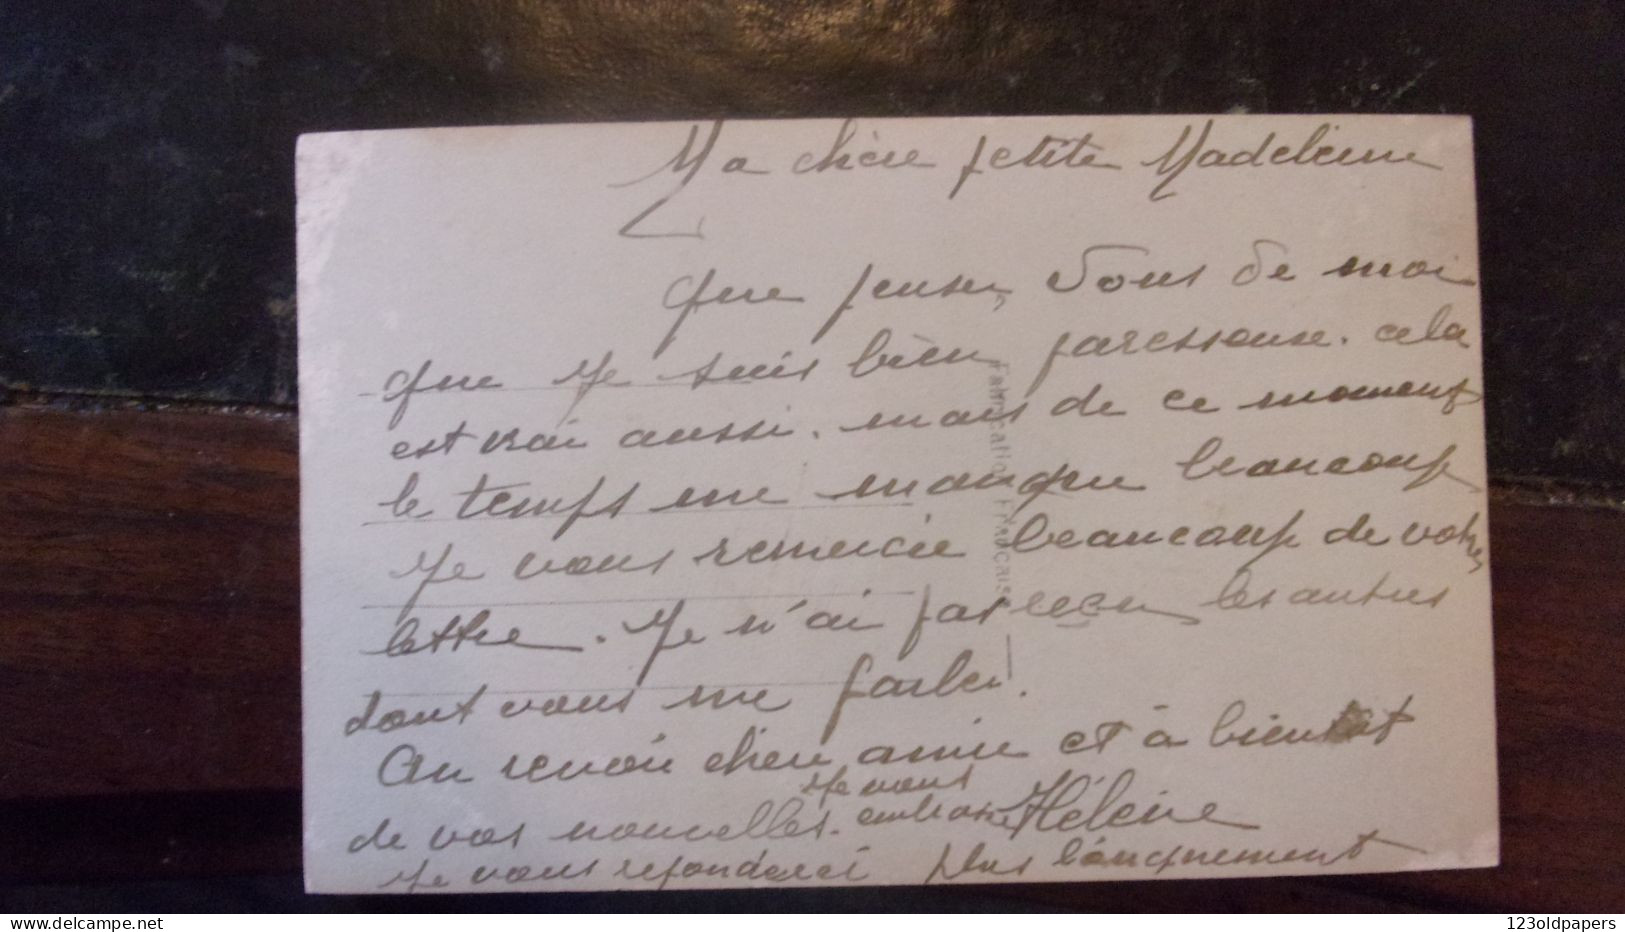 Ma chère petite Madeleine
Que pensez vous de moi
que je suis bien paressouse. cela
est vrai aussi. mais de ce moment
le temps me manque beaucoup
Je vous remercie beaucoup de votre
lettre. Je n'ai pas reçu les autres
dont vous me parlez.
Au revoir chère amie et à bientot
de vos nouvelles. Je vous
embrasse Hélène
Je vous reponderai plus longuement
Fabrication Française
delcampe.net
123oldpapers